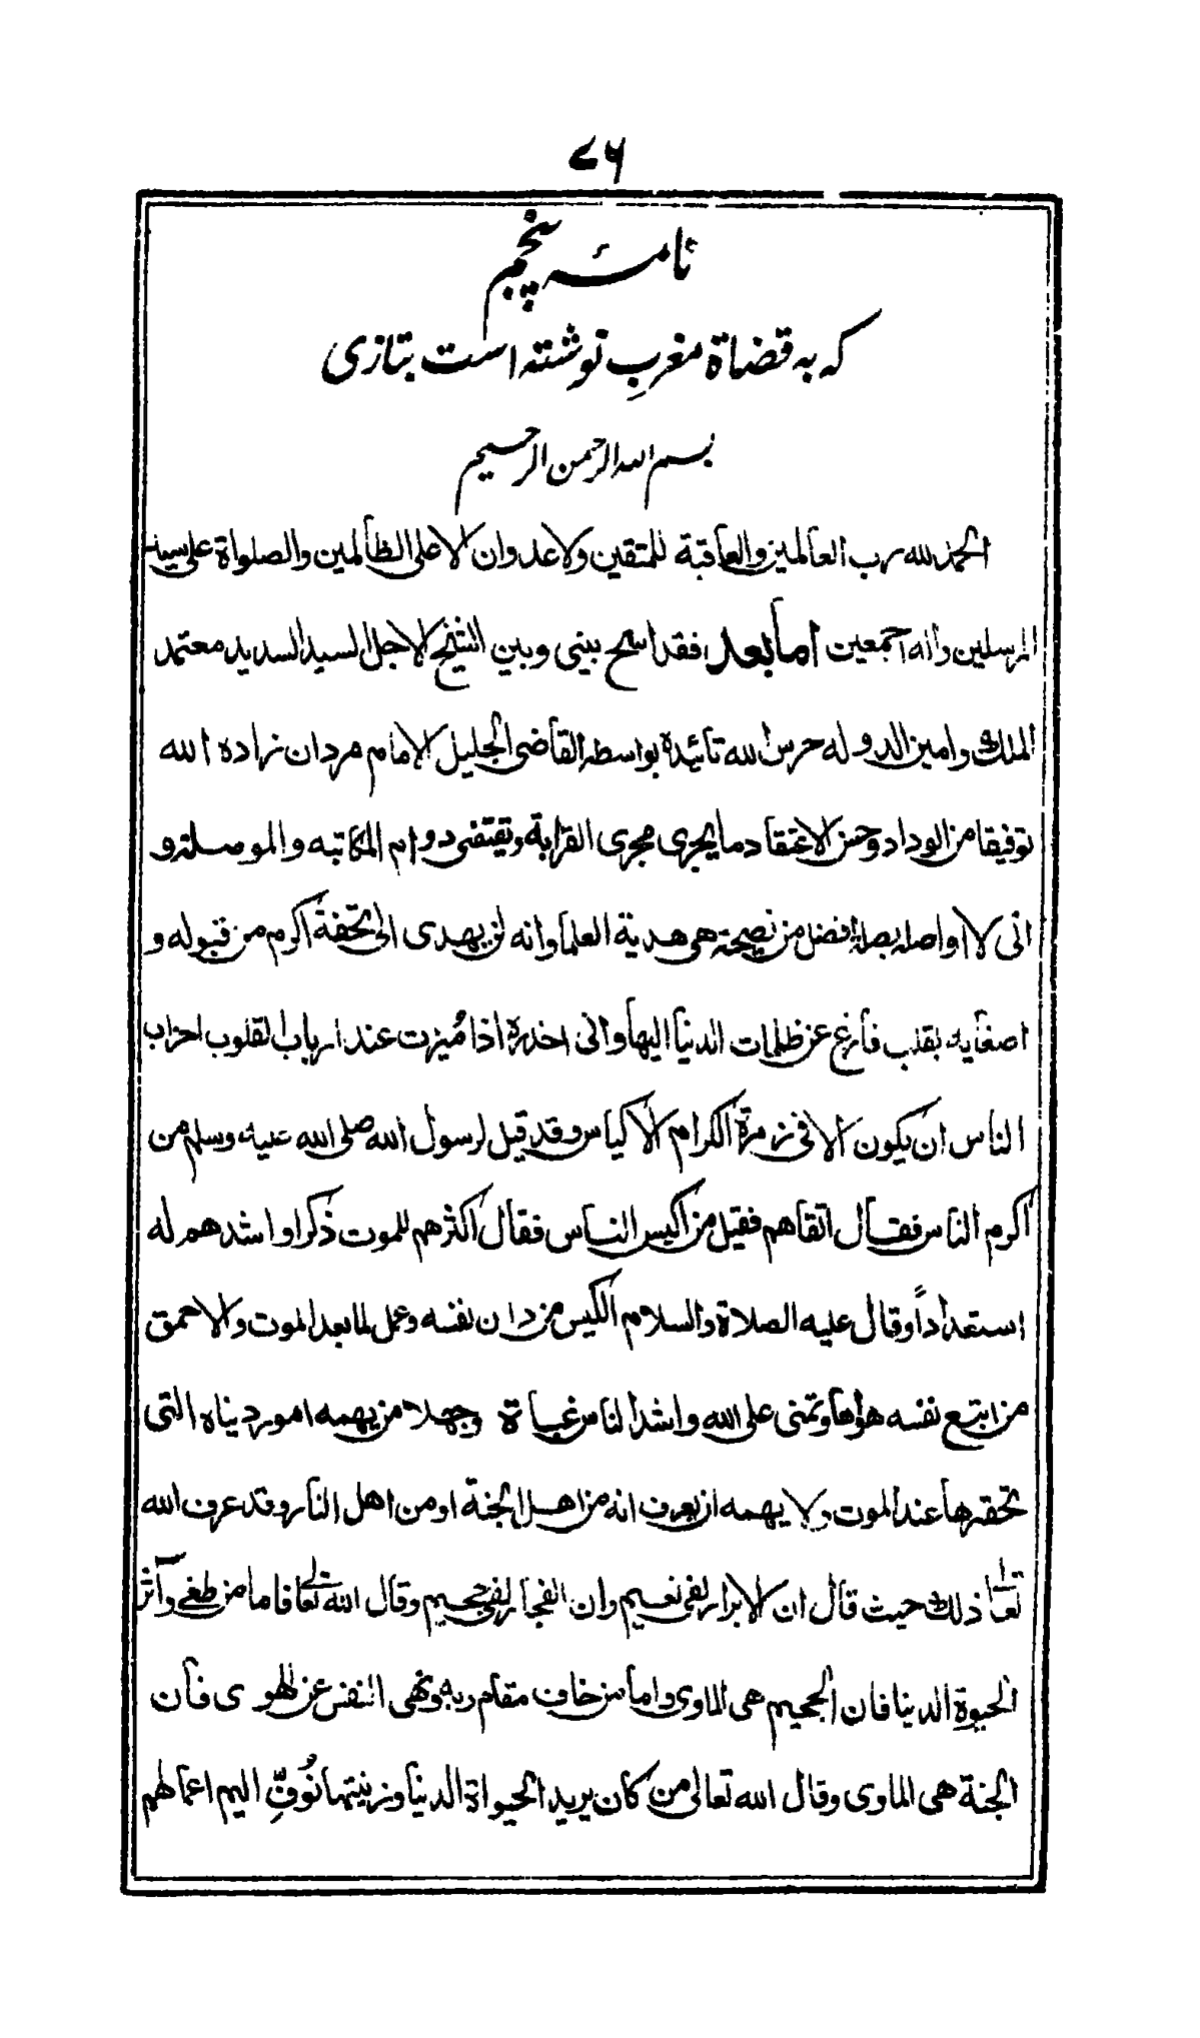 ۷۶
نامۂ پنجم
که به قضاة مغرب نوشته است بتازی
بسم الله الرحمن الرحیم
الحمد لله رب العالمین والعاقبة للمتقین ولا عدوان الا علی الظالمین والصلواة علی سید
المرسلین واله اجمعین اما بعد فقد اسح بینی وبین الشیخ الاجل السید السدید معتمد
الملک وامین الدوله حرس الله تائیده بواسطه القاضی الجلیل الامام مردان زاده الله
توفیقا من الوداد وحسن الاعتقاد ما یجری مجری القرابة ویقتضی دوام المکاتبه والموصلة و
انی لا اواصله بصلة افضل من نصیحة هی هدیة العلما وانه لن یهدی الی تحفة اکرم من قبوله و
اصغایه بقلب فارغ عن ظلمات الدنیا الیها وانی احذره اذا مُیزت عند ارباب القلوب احزاب
الناس ان یکون الا فی زمرة الکرام الاکیاس وقد قیل لرسول الله صلی الله علیه وسلم من
اکرم الناس فقال اتقاهم فقیل من اکیس الناس فقال اکثرهم للموت ذکرا واشدهم له
استعداداً وقال علیه الصلاة والسلام الکیس من دان نفسه وعمل لما بعد الموت والاحمق
من اتبع نفسه هواها وتمنی علی الله واشد الناس غباة وجهلا من یهمه امور دیناه التی
تحقرها عند الموت ولا یهمه ان یعرف انه من اهل الجنة او من اهل النار وقد عرف الله
تعالیٰ ذلک حیث قال ان الابرار لفی نعیم وان الفجار لفی جحیم وقال الله تعالیٰ فاما من طغے وآثر
الحیوة الدنیا فان الجحیم هی الماوی واما من خاف مقام ربه ونهی النفس عن الهوی فان
الجنة هی الماوی وقال الله تعالی من کان یرید الحیواة الدنیا وزینتها نُوَفِّ الیهم اعمالهم